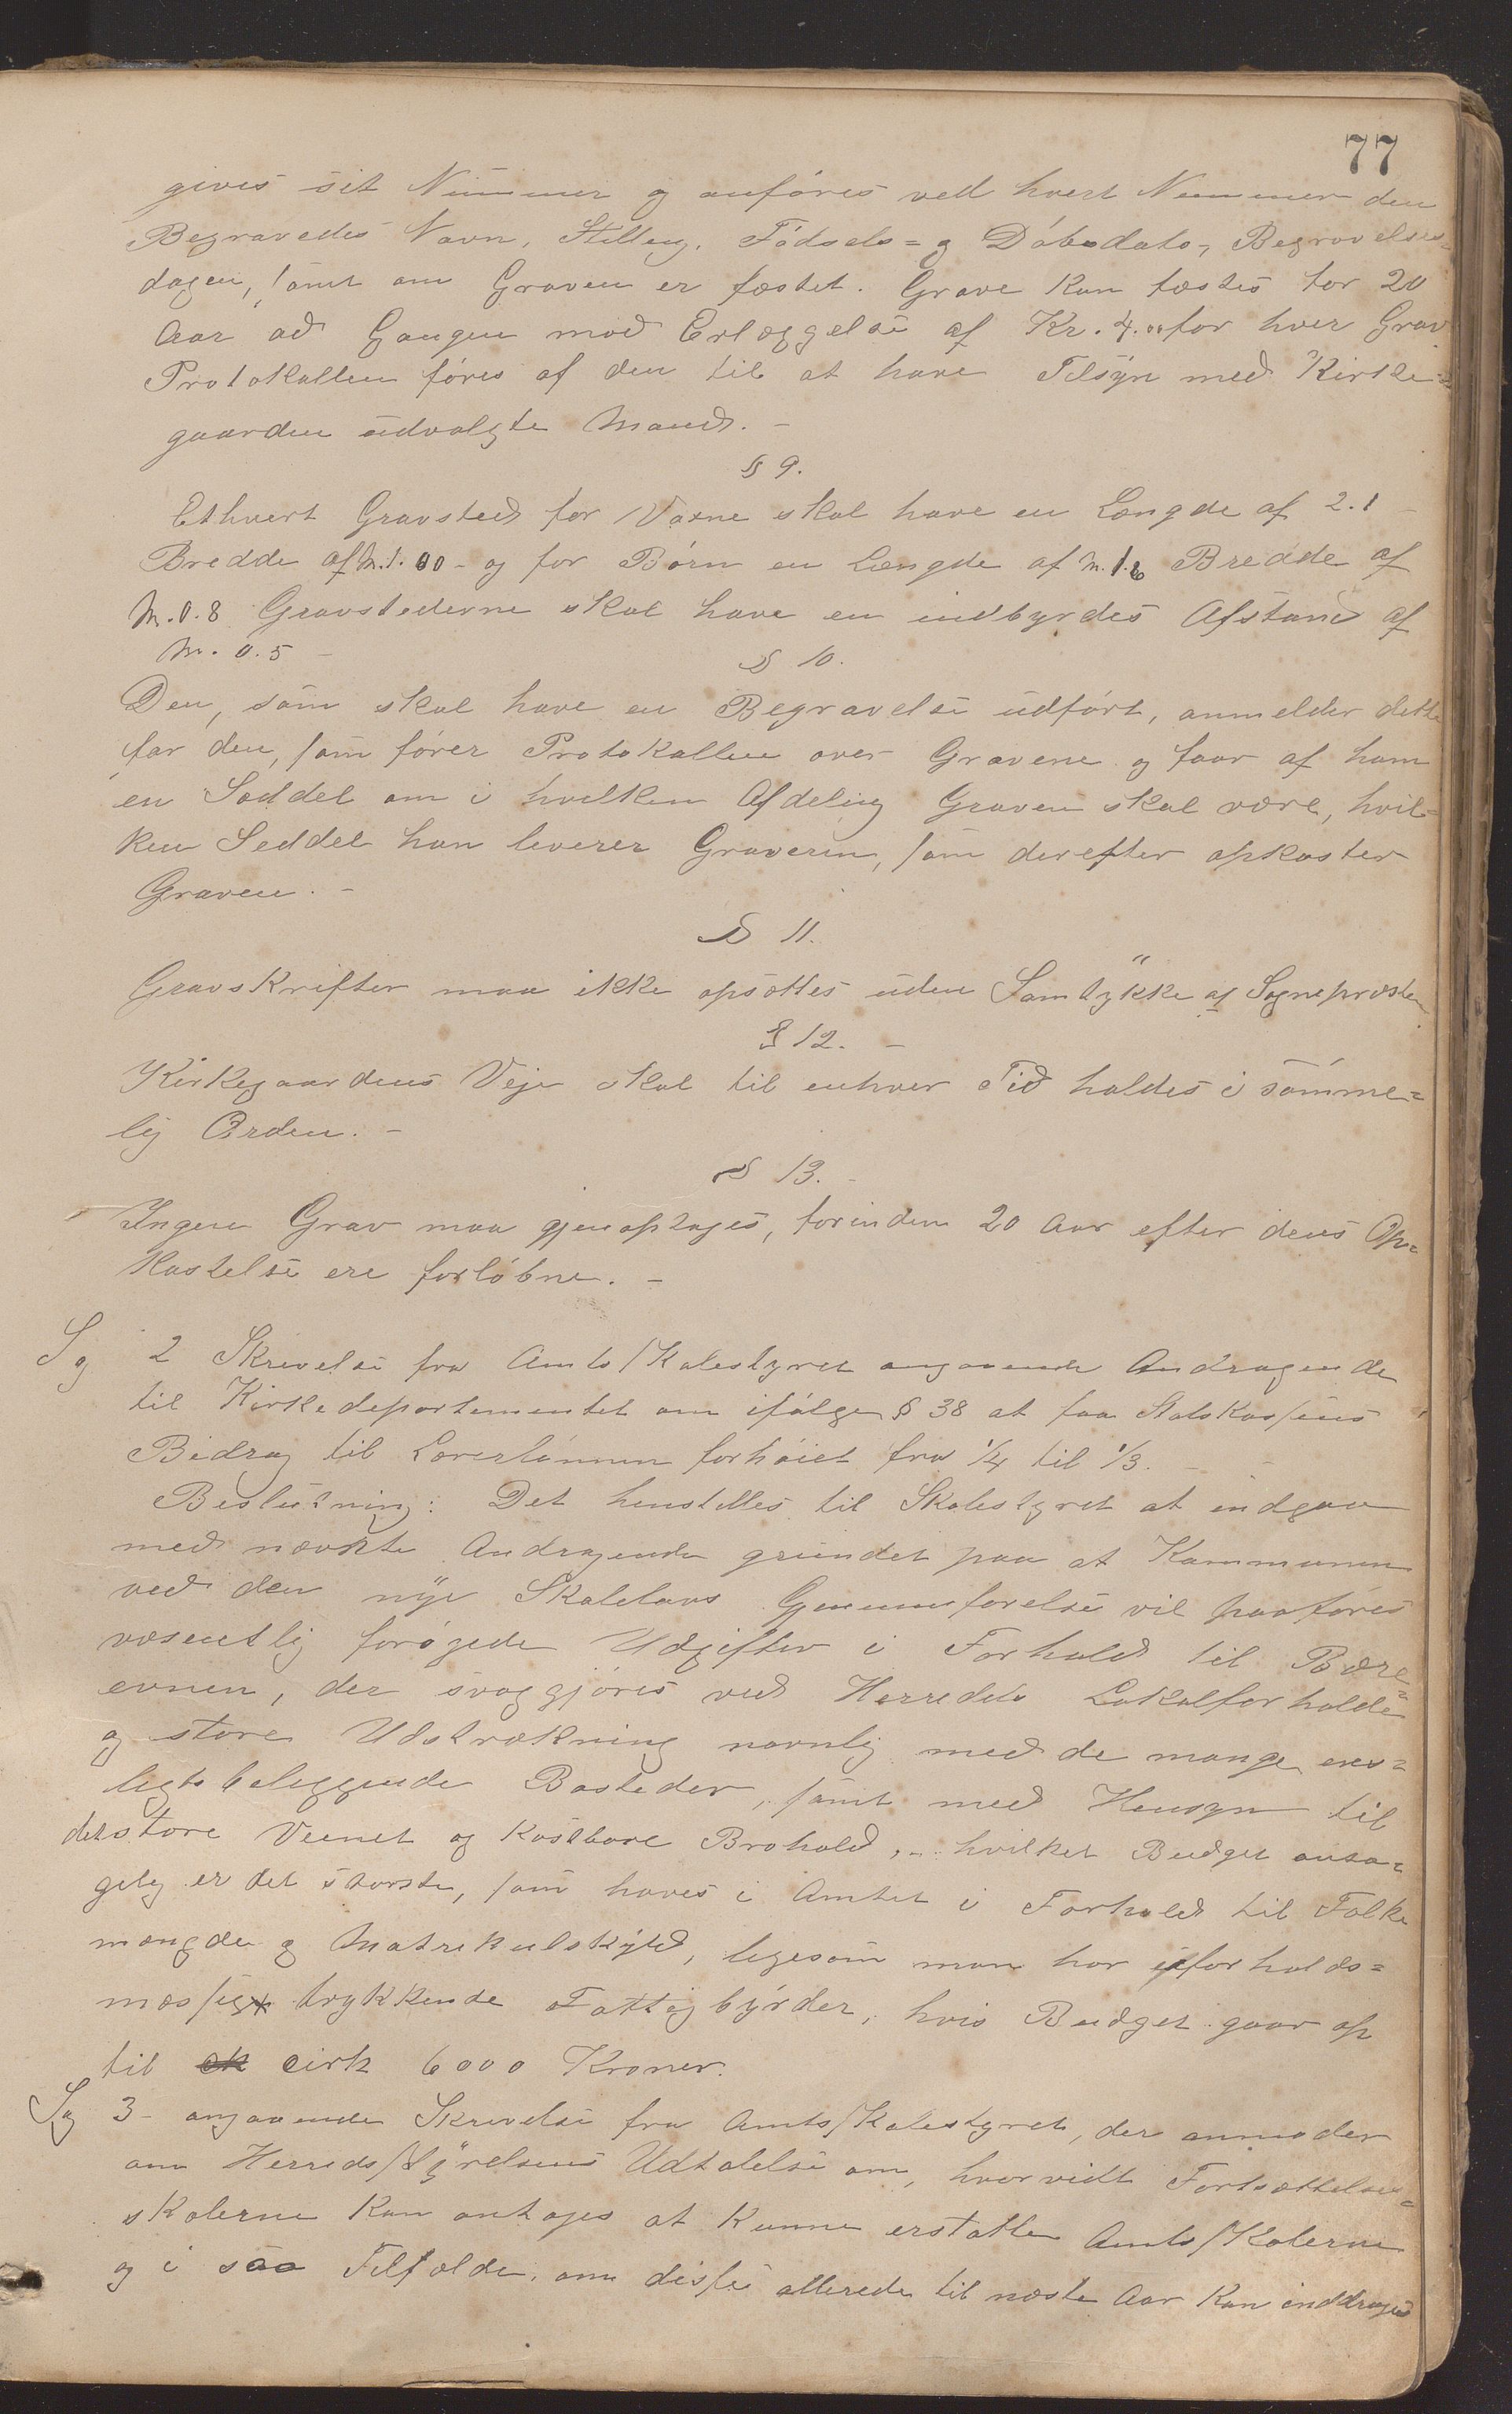 77
gives sit Nummer og anføres ved hvert Nummer den
Begravedes Navn, Stilling, Fødsels= og Døbsdato, Begravelses=
dagen, samt om Graven er fæstet. Grave kan fæstes for 20
Aar ad Gangen mod Erlæggelse af Kr. 4.00 for hver Grav
Protokollen føres af den til at have Tilsyn med Kirke=
gaarden udvalgte Mand. –
§ 9.
Ethvert Gravsted for Voxne skal have en Længde af 2.1 –
Bredde af M. 1.00 – og for Børn en Længde af M. 1.6 Bredde af
M. 0.8 Gravstederne skal have en indbyrdes Afstand af
M. 0.5 –
§ 10.
Den, som skal have en Begravelse udført, anmelder dette
for den, som fører Protokollen over Gravene og faar af ham
en Seddel om i hvilken Afdeling Graven skal være, hvil=
ken Seddel han leverer Graveren, som derefter opkaster
Graven. –
§ 11.
Gravskrifter maa ikke opsættes uden Samtykke af Sognepræsten.
§ 12. –
Kirkegaardens Veje skal til enhver Tid holdes i sømme=
lig Orden. –
§ 13. –
Ingen Grav maa gjenoptages, forinden 20 Aar efter dens Op=
kastelse ere forløbne. –
Sag 2 Skrivelse fra Amtsskolestyret angaaende Andragende
til Kirkedepartementet om ifølge § 38 at faa Statskassens
Bidrag til Lærerlønnen forhøiet fra 1/4 til 1/3. –
Beslutning: Det henstilles til Skolestyret at indgaa
med nævnte Andragende grundet paa at Kommunen
ved den nye Skolelovs Gjennemførelse vil paaføres
væsentlig forøgede Udgifter i Forhold til Bære=
evnen, der svaggjøres ved Herredets Lokalforholde
og store Udstrækning navnlig med de mange ens=
ligtbeliggende Bosteder, samt med Hensyn til
det store Veinet og kostbare Brohold, – hvilket Budget anta=
gelig er det største, som haves i Amtet i Forhold til Folke
mængde og Matrikulskyld, ligesom man har uforholds=
mæssig trykkende Fattigbyrder, hvis Budget gaar op
til cirk 6000 Kroner.
Sag 3 – angaaende Skrivelse fra Amtsskolestyret, der anmoder
om Herredsstyrelsens Udtalelse om, hvorvidt Fortsættelses=
skolerne kan antages at kunne erstatte Amtsskolerne
og i saa Tilfælde, om disse allerede til næste Aar kan inddrages